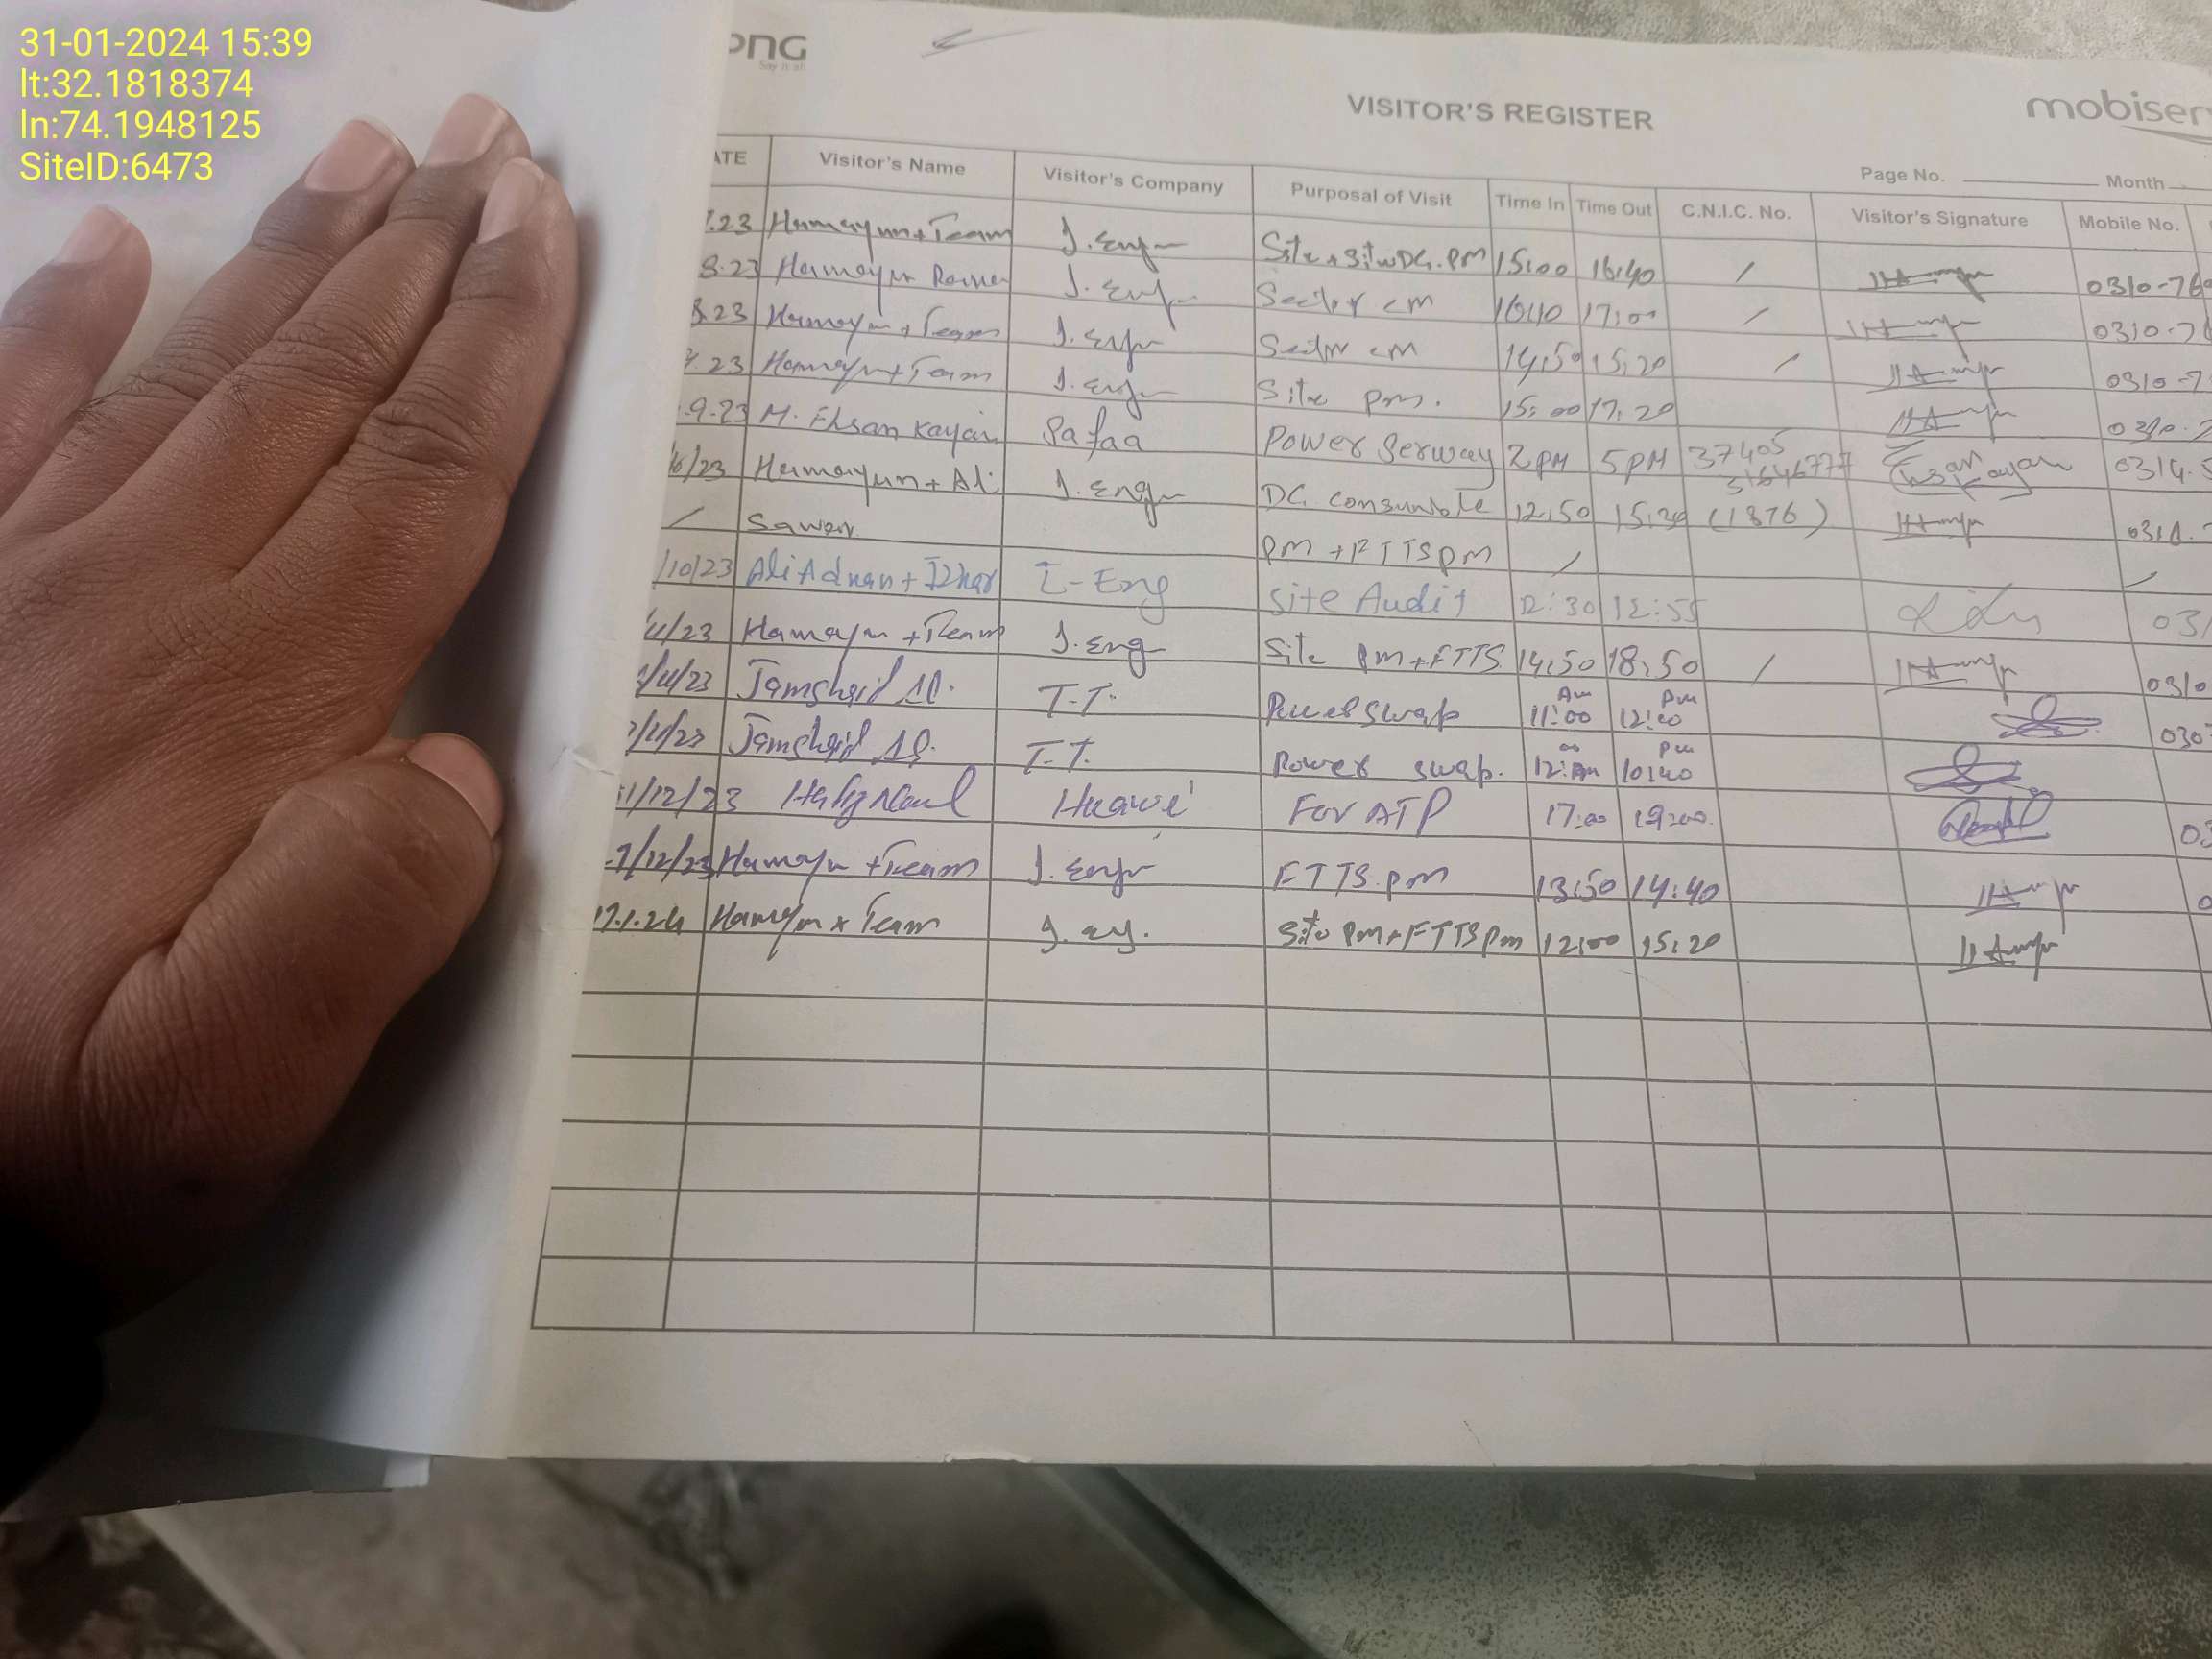 31-01-2024 15:39
lt:32.1818374
ln:74.1948125
SiteID:6473
ong
Say it all
VISITOR'S REGISTER
mobiser
Page No. Month
ATE Visitor's Name Visitor's Company Purposal of Visit Time In Time Out C.N.I.C. No. Visitor's Signature Mobile No.
.23 Hamayun + Team I. Eng Site + Site DG. PM 15:00 16:40 / 0310-76
8.23 Hamayun I. Eng Sector CM 16:40 17:00 / 0310-7
8.23 Hamayun + Team I. Eng Sector CM 14:50 15:20 / 0310-7
.23 Hamayun + Team I. Eng Site PM. 15:00 17:20
.9.23 M. Ehsan Kayan Safaa Power Serway 2PM 5PM 37405 0314-
/23 Hamayun + Ali I. Eng DG Consumble 12:50 15:30 (1376) 0310
Sawan PM + FTTS PM /
/10/23 Ali Adnan + Izhar I-Eng Site Audit 12:30 12:55 03
/11/23 Hamayun + Team I. Eng Site PM + FTTS 14:50 18:50 / 0310
/11/23 Jamshaid Al. T.T. Power Swap 11:00 Am 12:00 Pm 030
/11/23 Jamshaid Al. T.T. Power Swap. 12:Am 10:40 Pm
1/12/23 Huawei For ATP 17:00 19:00. 03
7/12/23 Hamayun + Team I. Eng FTTS. PM 13:50 14:40 0
17.1.24 Hamayun + Team I. Eng. Site PM + FTTS PM 12:00 15:20